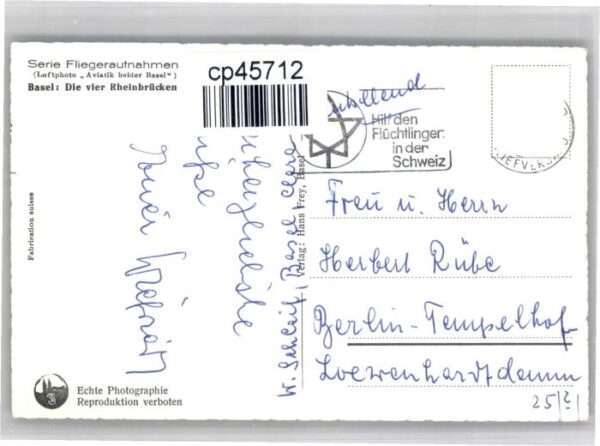 Serie Fliegeraufnahmen
(Luftphoto „Aviatik beider Basel")
Basel: Die vier Rheinbrücken
cp45712
Hilf den
Flüchtlingen
in der
Schweiz
Frau u. Herrn
Herbert Rübe
Berlin-Tempelhof
Loewenhardtdamm
25
Verlag: Hans Frey, Basel
Basel
herzlichste
Fabrication suisse
Echte Photographie
Reproduktion verboten